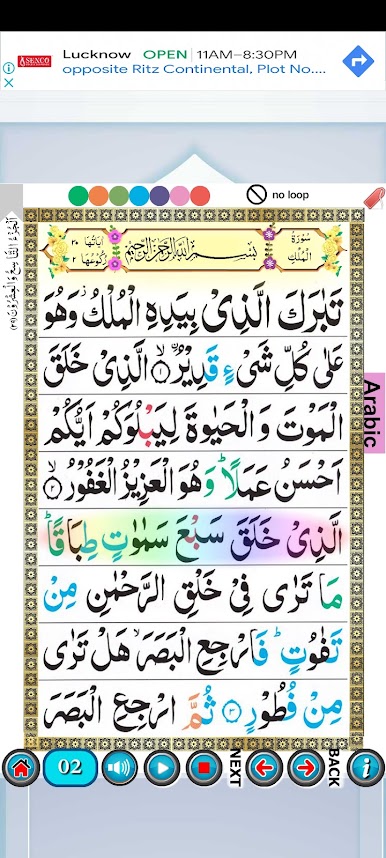 Lucknow OPEN 11AM–8:30PM
SENCO opposite Ritz Continental, Plot No....
no loop
سُوْرَةُ الْمُلْكِ
بِسْمِ اللّٰهِ الرَّحْمٰنِ الرَّحِيْمِ
اٰيَاتُهَا ٣٠
رُكُوْعُهَا ٢
تَبٰرَكَ الَّذِىْ بِيَدِهِ الْمُلْكُ ۡ وَهُوَ
عَلٰى كُلِّ شَىْءٍ قَدِيْرُ ۙ﴿۱﴾ الَّذِىْ خَلَقَ
الْمَوْتَ وَ الْحَيٰوةَ لِيَبْلُوَكُمْ اَيُّكُمْ
اَحْسَنُ عَمَلًا ؕ وَهُوَ الْعَزِيْزُ الْغَفُوْرُ ۙ﴿۲﴾
الَّذِىْ خَلَقَ سَبْعَ سَمٰوٰتٍ طِبَاقًا ؕ
مَا تَرٰى فِىْ خَلْقِ الرَّحْمٰنِ مِنْ
تَفٰوُتٍ ؕ فَارْجِعِ الْبَصَرَ ۙ هَلْ تَرٰى
مِنْ فُطُوْرٍ ﴿۳﴾ ثُمَّ ارْجِعِ الْبَصَرَ
اَلْجُزْءُ التَّاسِعُ وَالْعِشْرُوْنَ (٢٩)
Arabic
02
NEXT
BACK